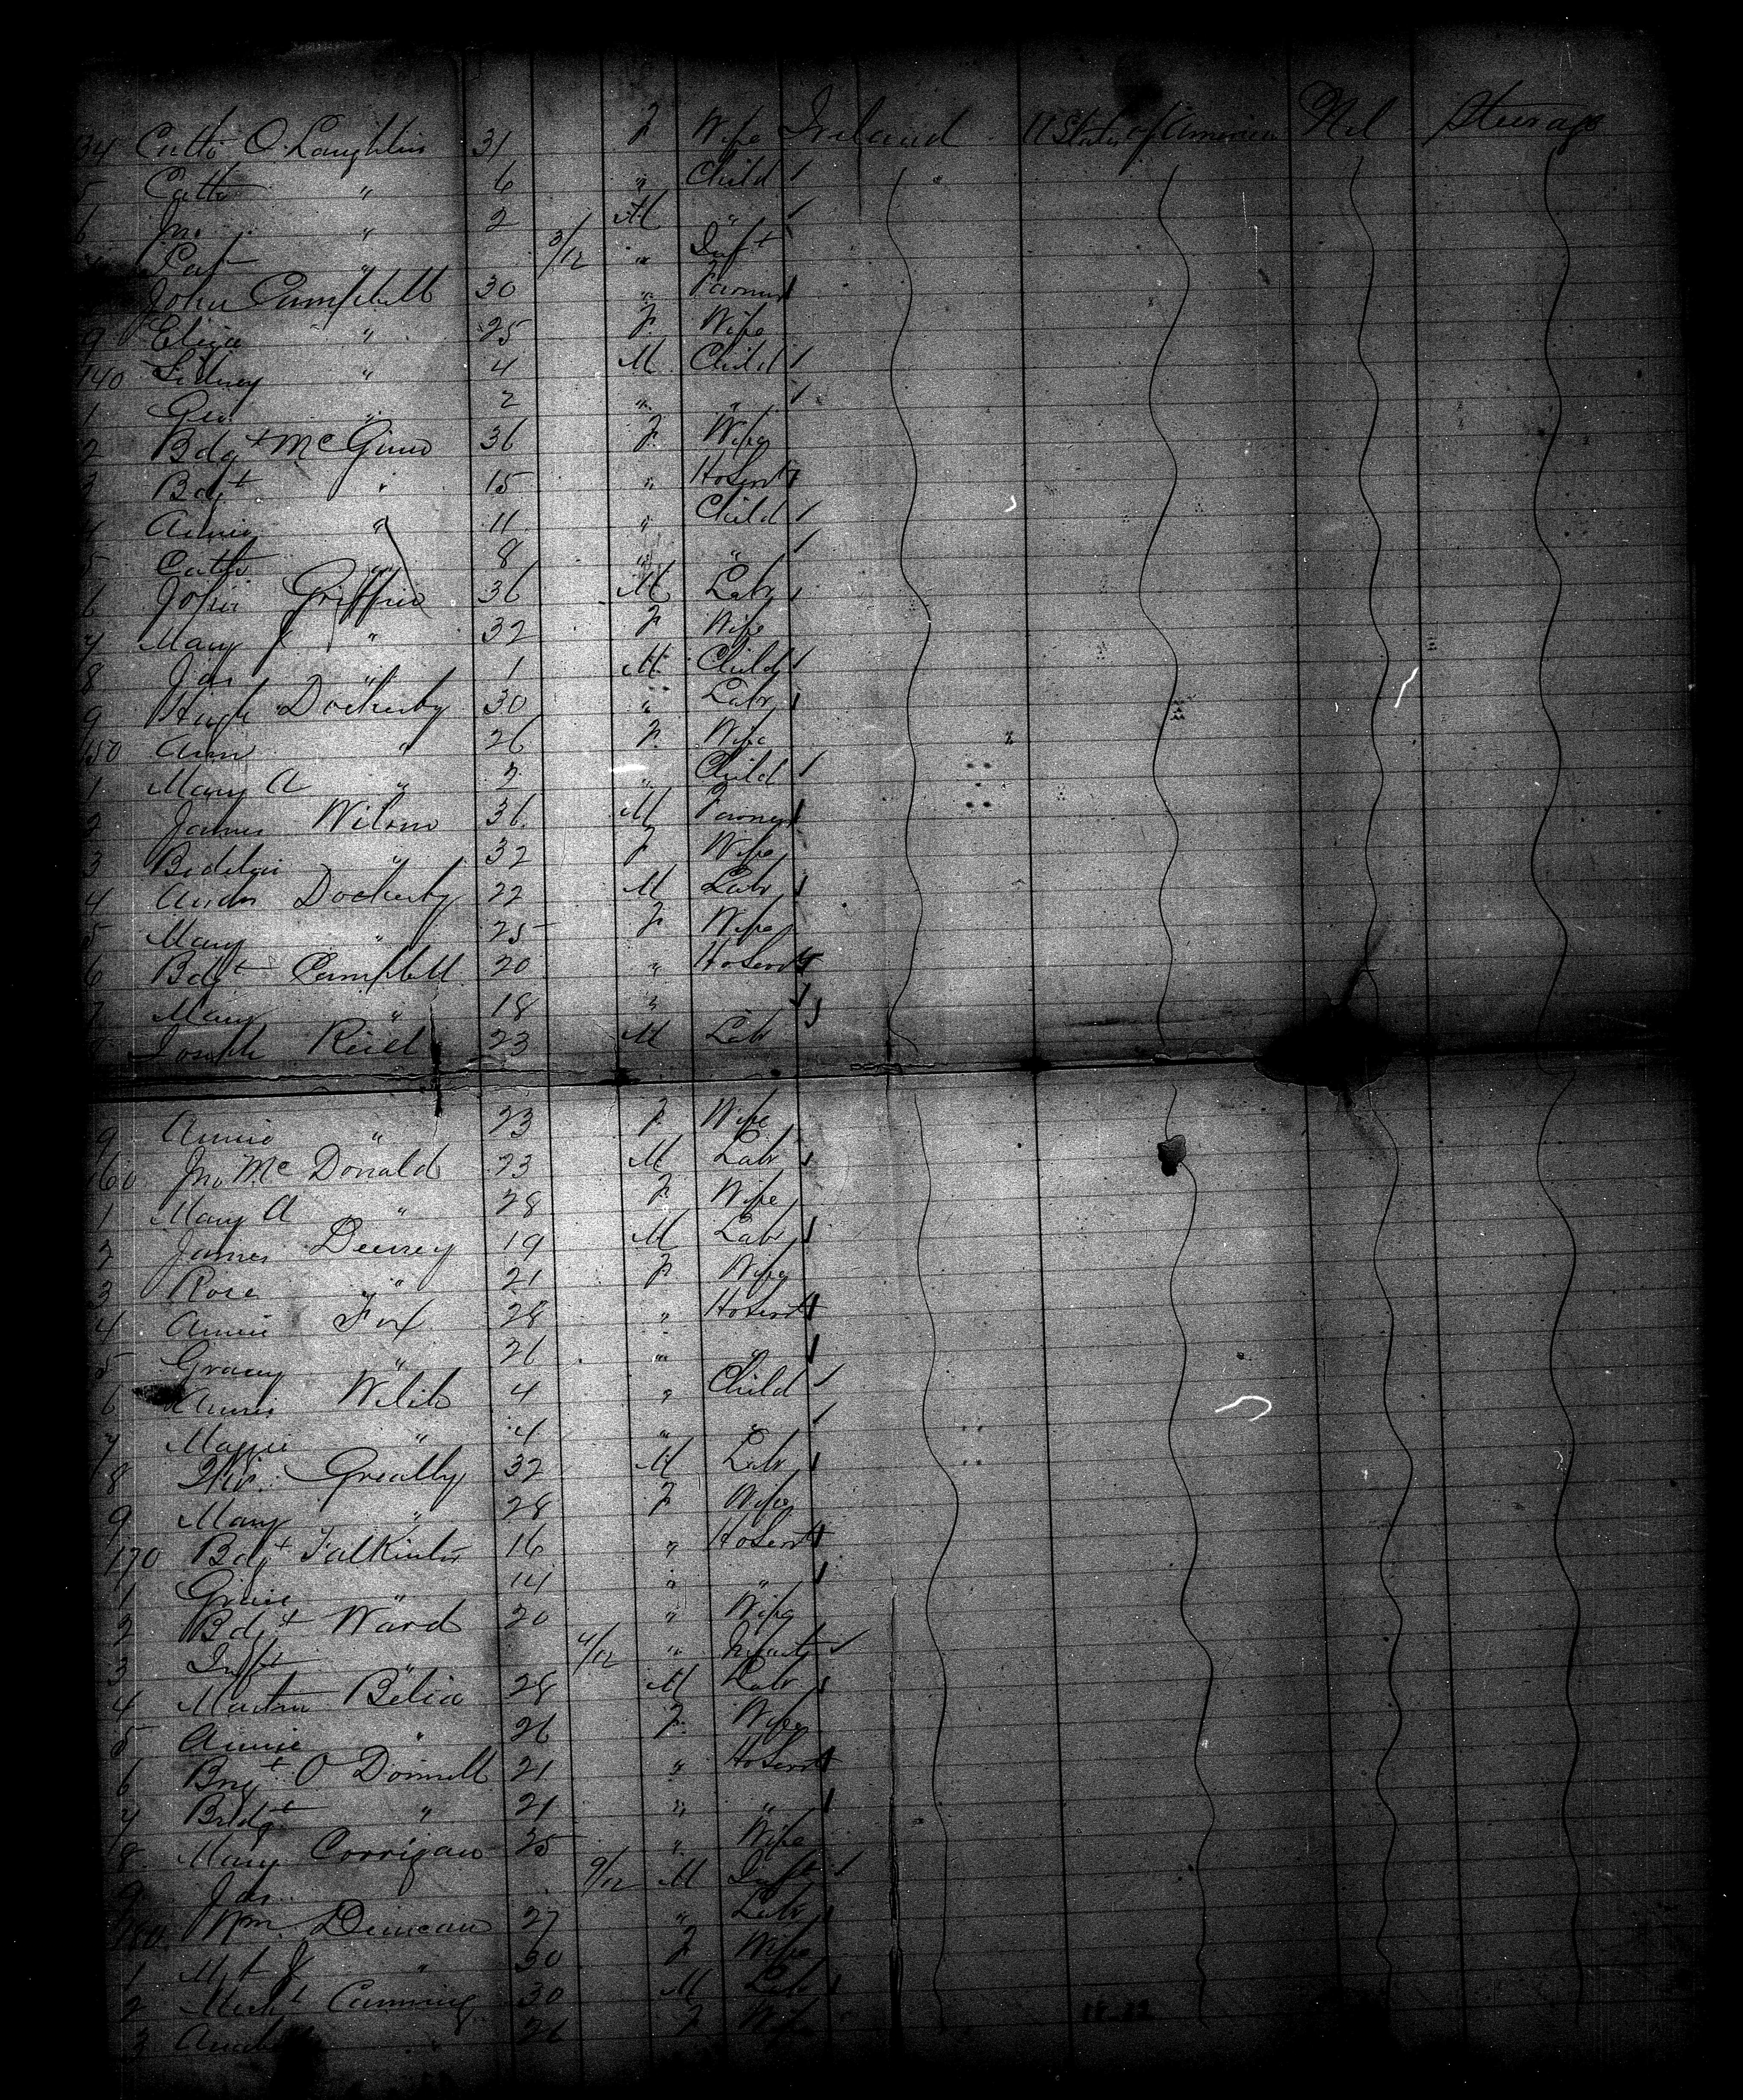 34 Cath O'Laughlin 31 F Wife Ireland U States of America Nil Steerage
5 Cath " 6 " Child
6 Jno " 2 M "
Pat " 3/12 " Inft
John Campbell 30 " Farmer
9 Eliza " 25 F Wife
140 Sidney " 4 M Child
1 Geo " 2 " "
2 Bdgt McGinn 36 F Wife
3 Bdgt " 15 " HoServt
4 Annie " 11 " Child
5 Cath " 8 " "
6 John Griffin 36 M Labr
7 Mary J " 32 F Wife
8 Jas " 1 M Child
9 Hugh Docherty 30 " Labr
150 Ann " 26 F Wife
1 Mary A " 2 " Child
2 James Wilson 36 M Farmer
3 " 32 F Wife
4 Andw Docherty 22 M Labr
5 Mary " 25 F Wife
6 Bdgt Campbell 20 " HoServt
7 Mary " 18 "
8 Joseph 23 M Lab
9 Annie " 23 F Wife
160 Jno McDonald 23 M Labr
1 Mary A " 28 F Wife
2 James 19 M Labr
3 Rose " 21 F Wife
4 Annie Fox 28 " HoServt
5 Gracey " 26 " "
6 Annie 4 " Child
7 Maggie " 4 " "
8 Greally 32 M Labr
9 Mary " 28 F Wife
170 Bdgt 16 " HoServt
1 " 14 " "
2 Bdgt Ward 20 " Wife
3 Inft " 4/12 " Infant
4 Martin 28 M Labr
5 Annie " 26 F Wife
6 O'Donnell 21 " HoServt
7 Bridgt " 21 " "
8 Mary Corrigan 25 " Wife
9 Jas 9/12 M Inft
180 Wm Duncan 27 " Labr
1 Mgt J " 30 F Wife
2 Michl Cumming 30 M Labr
3 " 26 F Wife